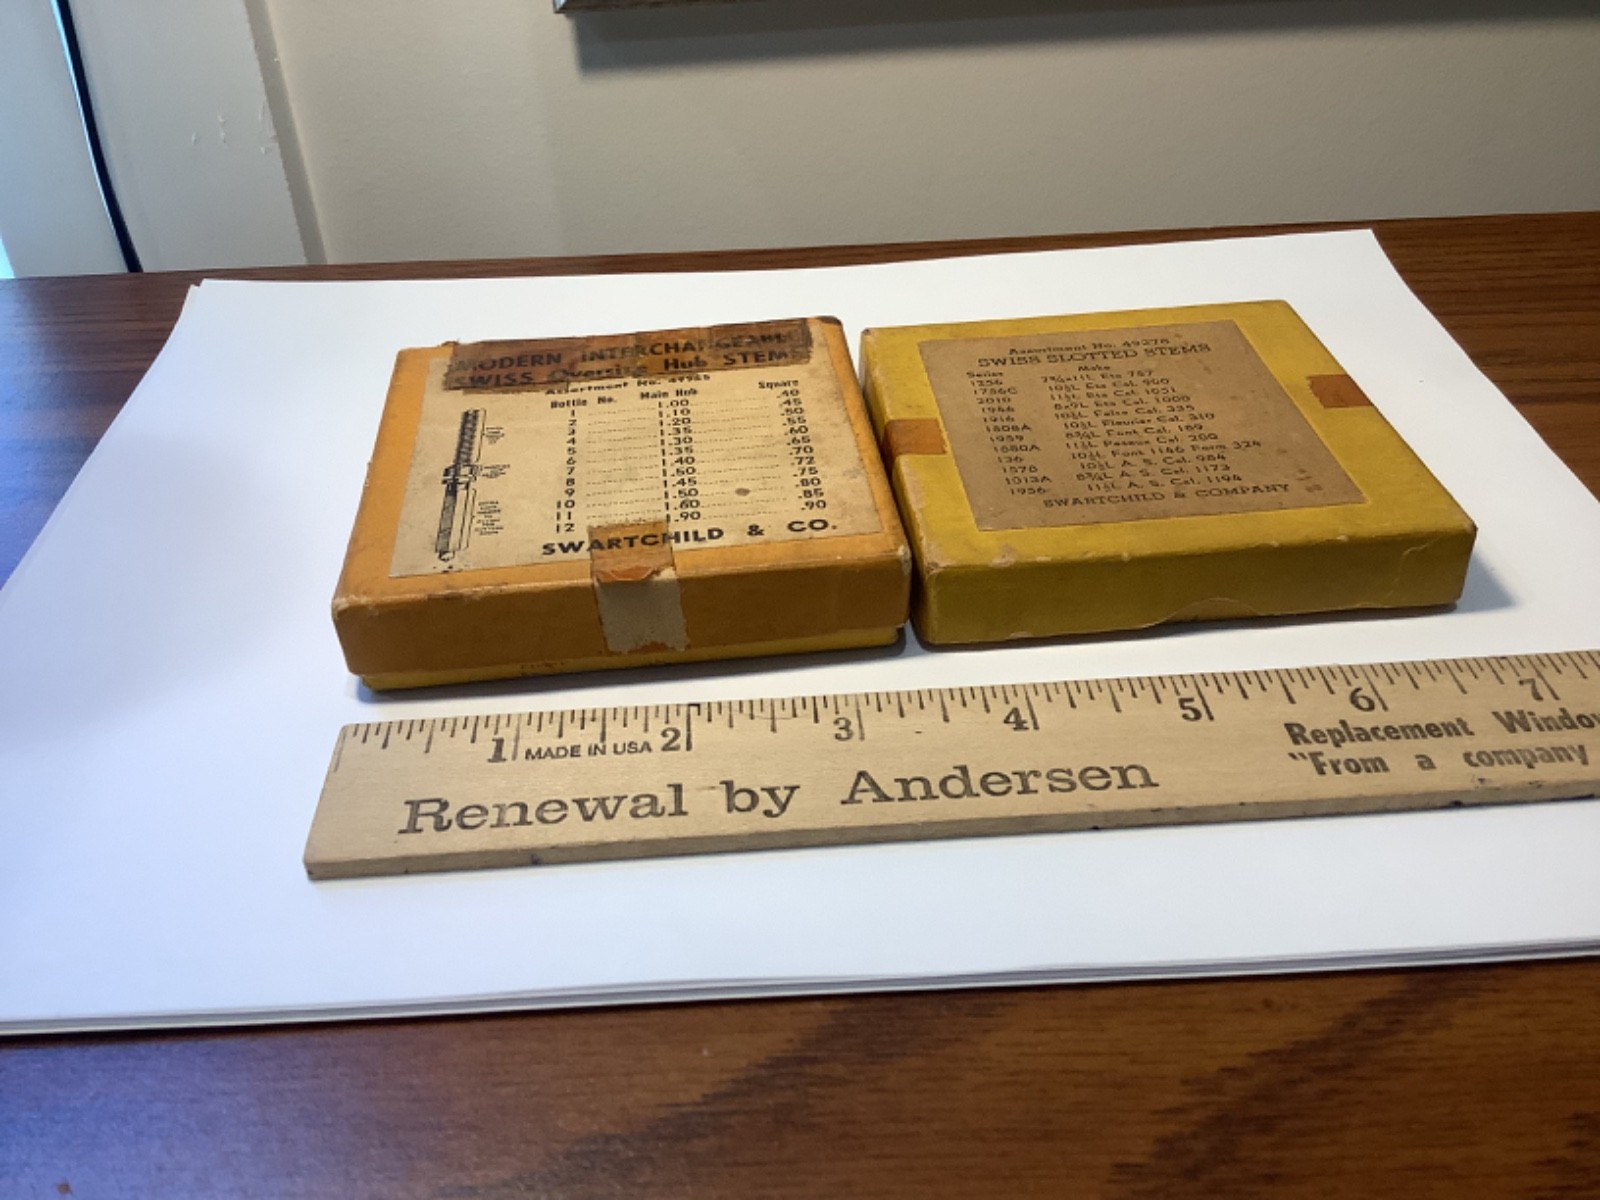 MODERN INTERCHANGEABLE
SWISS Oversize Hub STEMS
Assortment No. 49985
Bottle No. Main Hub Square
1 1.00 .40
2 1.10 .45
3 1.20 .50
4 1.35 .55
5 1.30 .60
6 1.35 .65
7 1.40 .70
8 1.50 .72
9 1.45 .75
10 1.50 .80
11 1.60 .85
12 1.90 .90
SWARTCHILD & CO.
Assortment No. 49276
SWISS SLOTTED STEMS
Series Make
1256 7¾x11L Eta 757
1756C 10½L Eta Cal. 900
2010 11½L Eta Cal. 1051
1946 8x9L Eta Cal. 1000
1916 10½L Felsa Cal. 335
1808A 10½L Fleurier Cal. 310
1959 8¾L Font Cal. 189
1680A 11½L Peseux Cal. 200
136 10½L Font 1146 Form 324
1578 10½L A. S. Cal. 984
1013A 8¾L A. S. Cal. 1173
1956 11½L A. S. Cal. 1194
SWARTCHILD & COMPANY
1 MADE IN USA 2 3 4 5 6 7
Renewal by Andersen
Replacement Windo
"From a company